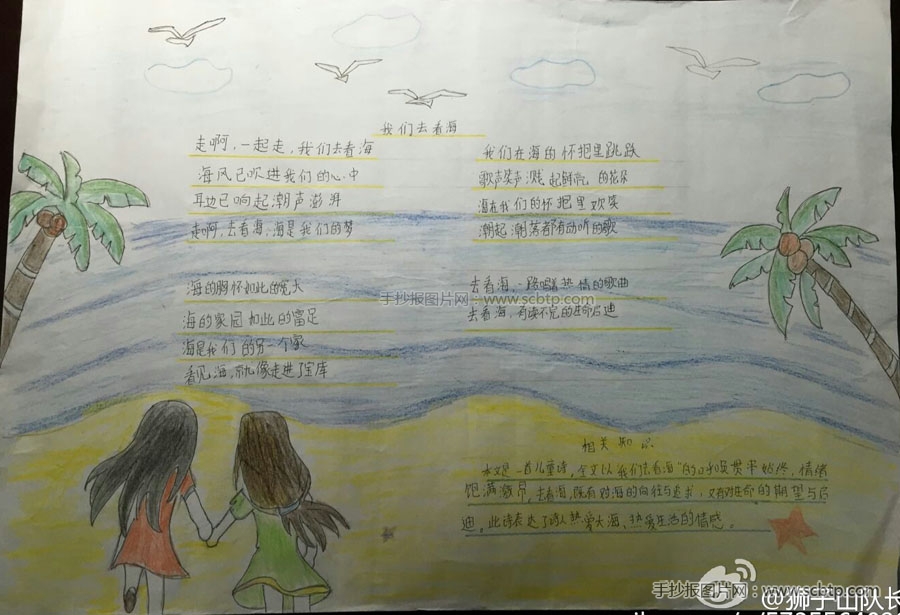 我们去看海
走啊,一起走,我们去看海
海风已吹进我们的心中
耳边已响起潮声澎湃
走啊,去看海,海是我们的梦
海的胸怀如此的宽大
海的家园如此的富足
海是我们的另一个家
看见海,就像走进了宝库
我们在海的怀抱里跳跃
歌声笑声溅起鲜亮的花朵
海在我们的怀抱里欢笑
潮起潮落都有动听的歌
去看海,一路唱热情的歌曲
去看海,有读不完的生命启迪
手抄报图片网:www.scbtp.com
相关知识
本文是一首儿童诗,全文以"我们去看海"的口吻贯串始终,情绪
饱满激昂,去看海,既有对海的向往与追求,又有对生命的期望与启
迪,此诗表达了诗人热爱大海、热爱生活的情感。
手抄报图片网:www.scbtp.com
@狮子山队长